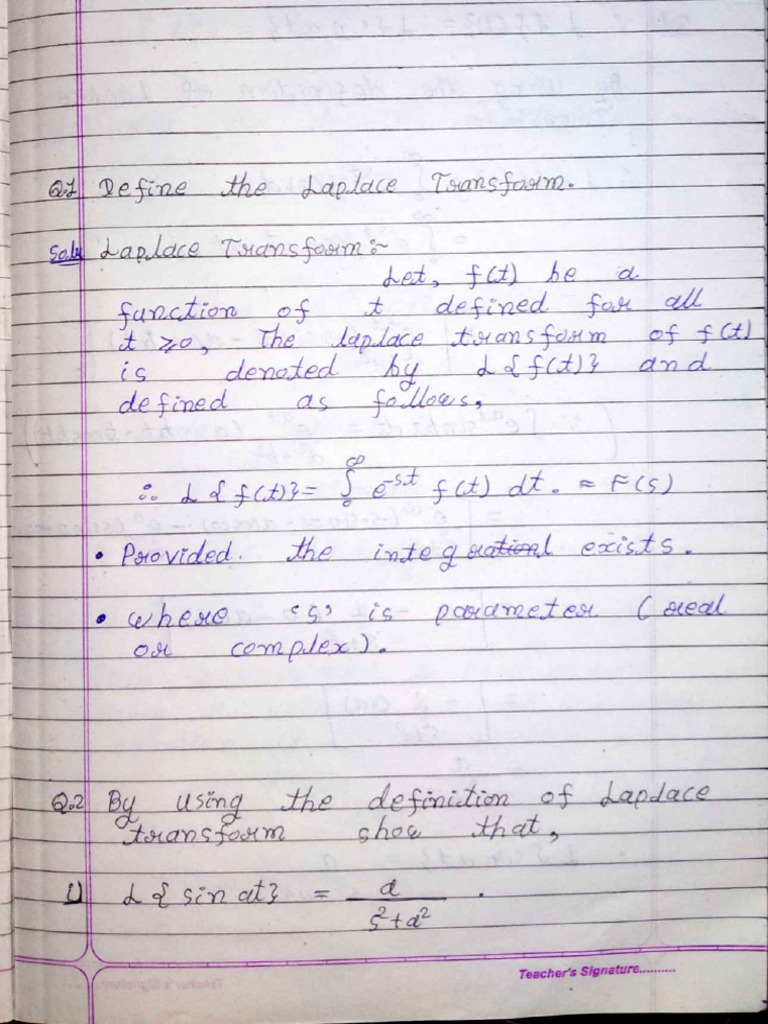 Q.1 Define the Laplace Transform.
Soln Laplace Transform :-
Let, f(t) be a
function of t defined for all
t ≥ 0, The laplace transform of f(t)
is denoted by L{f(t)} and
defined as follows,
∴ L{f(t)} = ∫₀^∞ e^-st f(t) dt. = F(s)
• Provided. the integral exists.
• where 's' is parameter (real
or complex).
Q.2 By using the definition of Laplace
transform show that,
i) L{sin at} = a / s²+a² .
Teacher's Signature..........